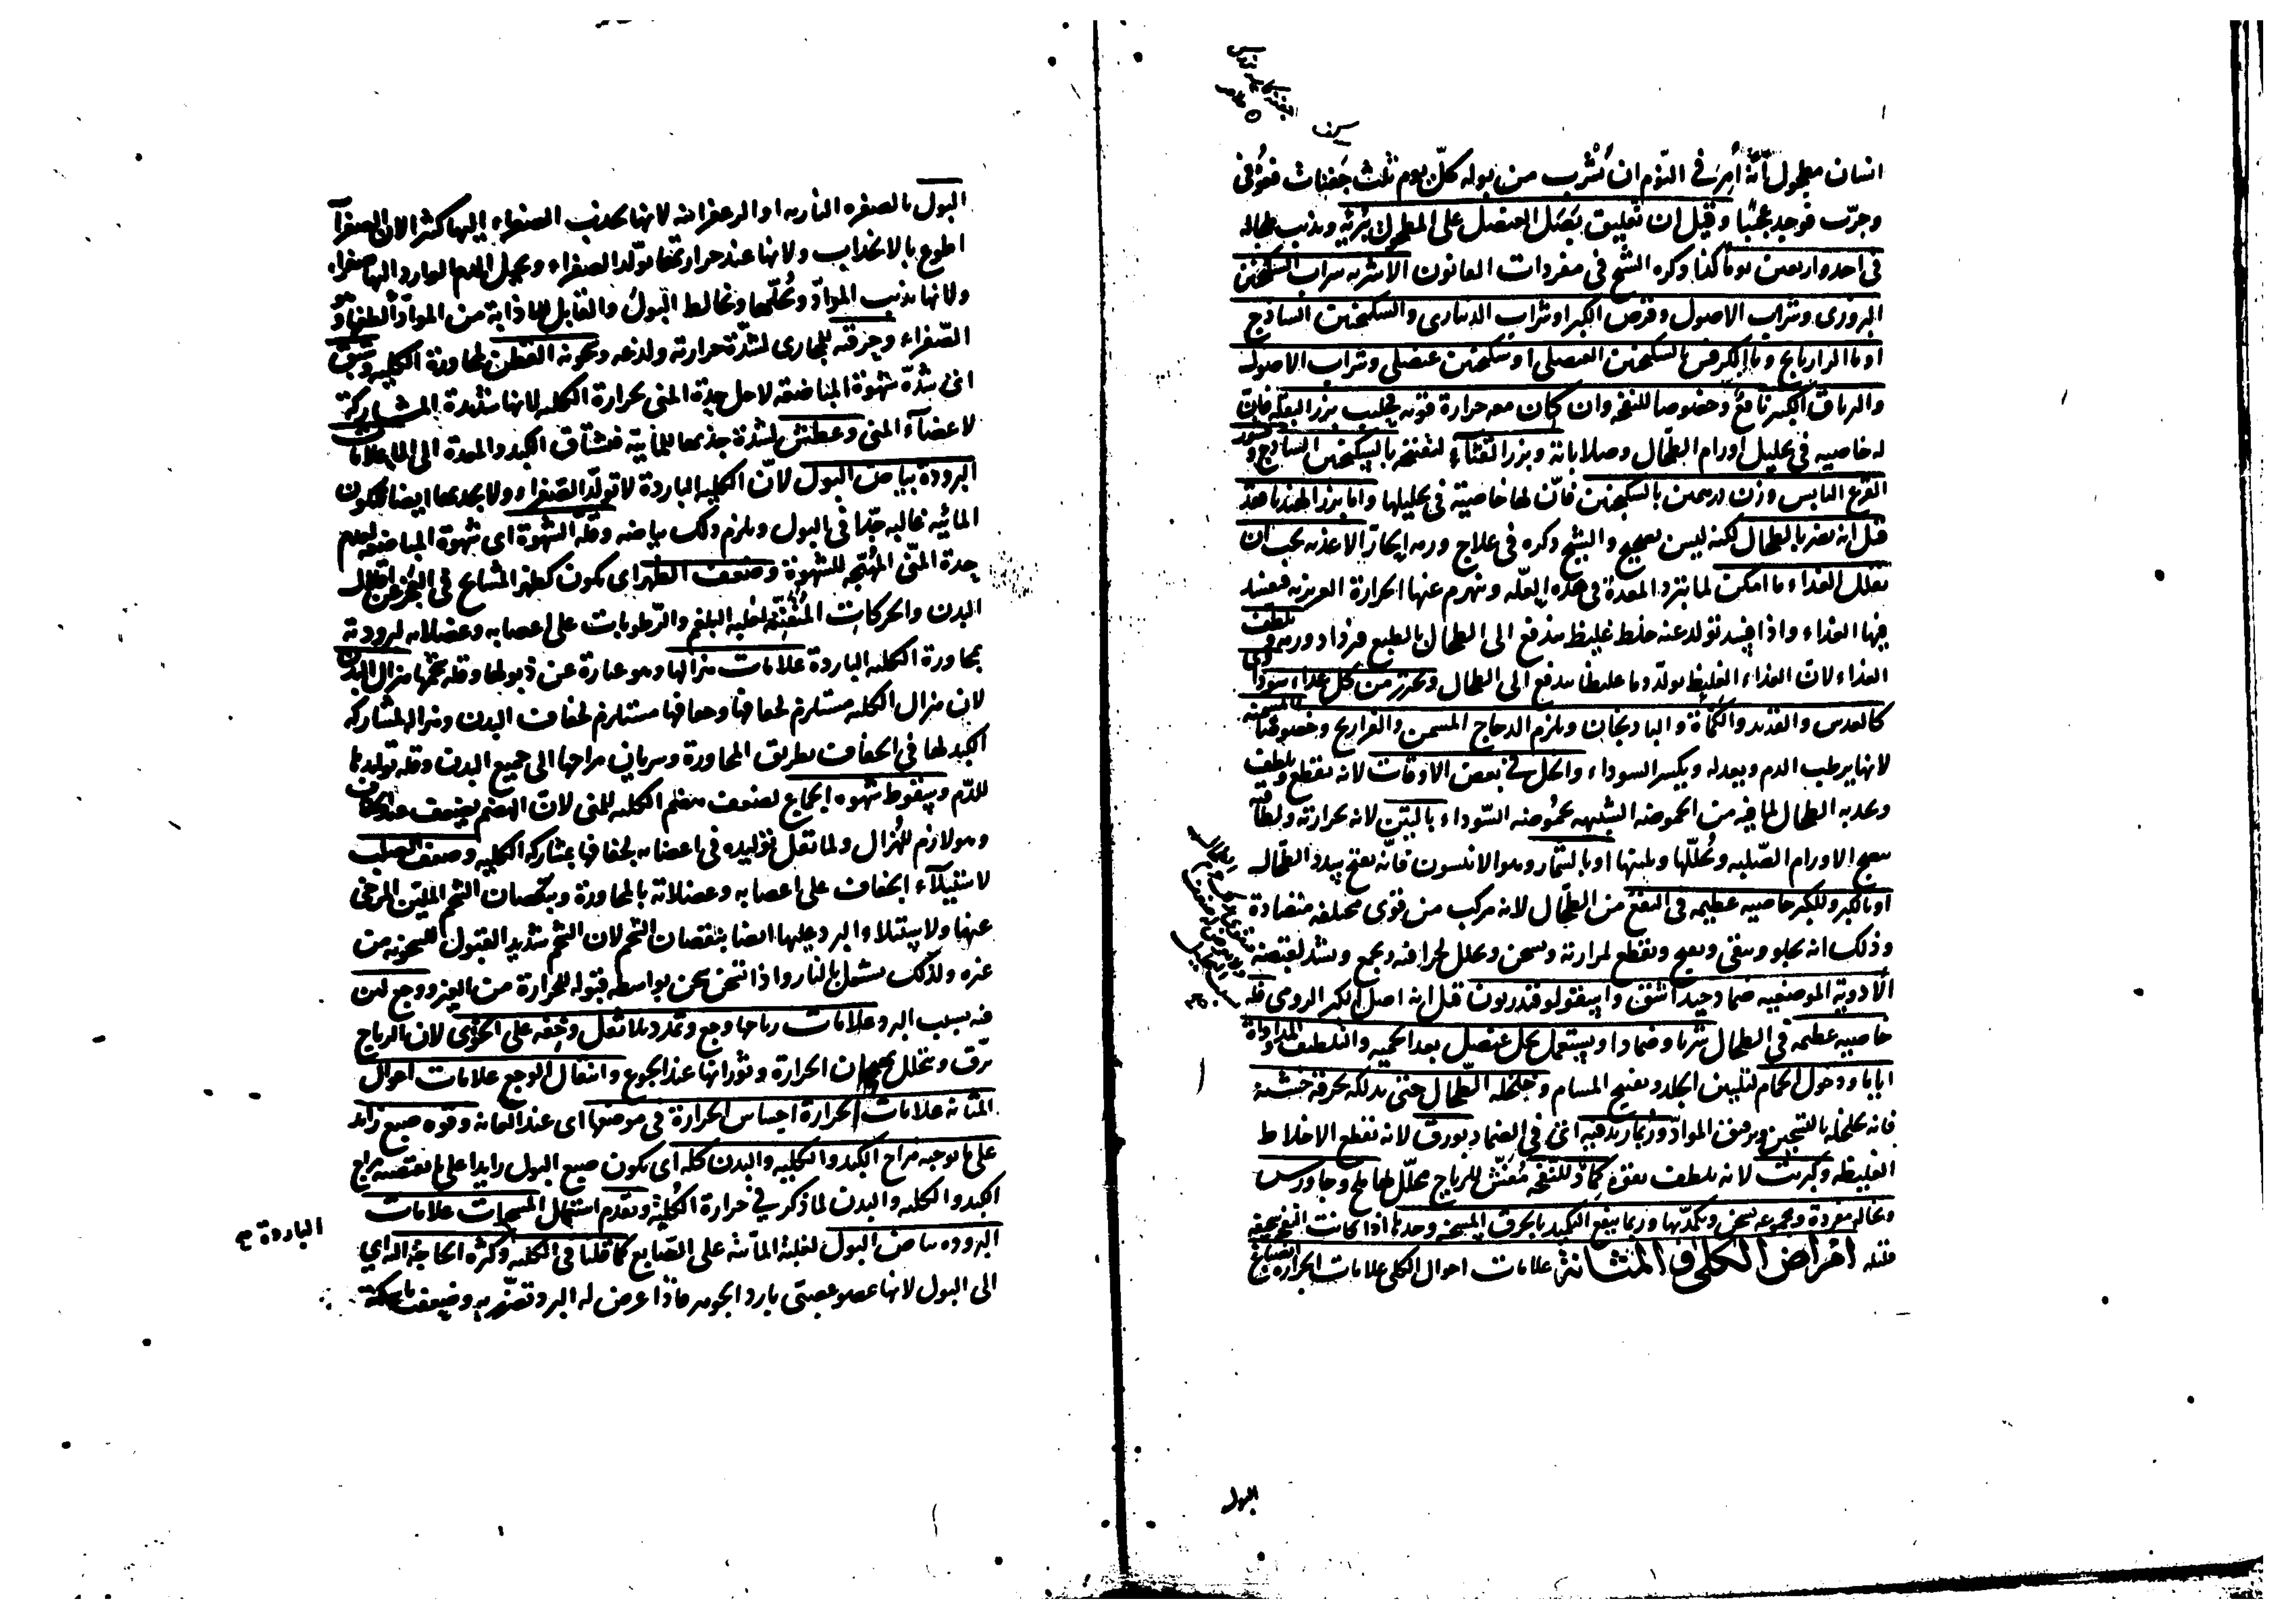 انسان مطحول انه أُمِرَ في النوم ان يشرب من بوله كل يوم ثلث حفنات فعوفى
وجرّب فوجد عجيبا وقيل ان تعليق بصل العنصل على المطحول يبريه ويذيب طحاله
في احد واربعين يوما كذا ذكره الشيخ في مفردات القانون الاشربه شراب السكنجبين
البزورى وشراب الاصول وقرص الكبر او شراب الدينارى والسكنجبين الساذج
او ماء الرازيانج وماء الكرفس بالسكنجبين العنصلى او سكنجبين عنصلى وشراب الاصول
والترياق الكبير نافع وخصوصا للنفخه وان كان معه حرارة قويه فحليب بزر البقله فان
له خاصيه في تحليل اورام الطحال وصلاباته وبزر القثاء لتفتيحه بالسكنجبين الساذج و
القرع اليابس وزن درهمين بالسكنجبين فانّ لها خاصية في تحليلها واما بزر الهندبا فقد
قيل انه يضر بالطحال لكنه ليس بصحيح والشيخ ذكره في علاج ورمه الحار الاغذيه يجب ان
يقلل الغذاء ما امكن لما تبرد المعدة في هذه العله وينهزم عنها الحرارة الغريزيه فيفسد
فيها الغذاء واذا فسد تولد عنه خلط غليظ يندفع الى الطحال بالطبع فيزداد ورمه ويلطف
الغذاء لان الغذاء الغليظ يولّد دما غليظا يندفع الى الطحال ويحترز من كل غذاء سوداوى
كالعدس والقديد والكمأة والباذنجان ويلزم الدجاج المسمن والفراريج وخصوصا المسمنه
لانها يرطب الدم ويعدله ويكسر السوداء والخل في بعض الاوقات لانه يقطع ويلطف
ويجذبه الطحال لما فيه من الحموضه الشبيهه بحموضه السوداء بالتين لانه بحرارته ولطافته
ينضج الاورام الصلبه ويحلّلها ويلينها او بالشمار وهو الانيسون فانّه يفتح سدد الطحال
او بالكبر وللكبر خاصيه عظيمه في النفع من الطحال لانه مركب من قوى مختلفه متضادة
وذلك انه يجلو وينقى ويفتح ويقطع لمرارته ويسخن ويحلل لحرافته ويجمع ويشد لقبضه
الادوية الموضعيه ضمادجيد اشق واسقولوقندريون قيل انه اصل الكبر الرومى فله
خاصيه عظيمه في الطحال شربا وضمادا ويستعمل بخل عنصل بعد الحميه والتلطيف المداواة
اياما ودخول الحمام لتليين الجلد وتفتيح المسام وخلخله الطحال حتى يدلكه بخرقة خشنه
فانه يخلخله بالتسخين وترقيق الموادّ وربما زيد فيه اى في الضماد بورق لانه يقطع الاخلاط
الغليظه وكبريت لانه يلطف بقوة كماد للنفخه مُفشّ للرياح محلّل لها ملح وجاورس
ونخاله مفردة ومجموعه يسخن ويكمد بها وربما ينفع التكميد بالخرق المسخنه وحدها اذا كانت النفخه خفيفه
قليله امراض الكلى والمثانة علامات احوال الكلى علامات الحراره انصباغ
البول
البول بالصفره الناريه او الزعفرانيه لانها يجذب الصفراء اليها كثيرا لان الصفرآ
اطوع بالانجذاب ولانها عند حرارتها تولّد الصفراء ويحيل الدم الوارد اليها صفراء
ولانها يذيب الموادّ ويحلّلها ويخالط البول والقابل للاذابة من الموادّ الطفها وهو
الصفراء وحرقته للمجارى لشدّة حرارته ولذعه وسخونه القطن لمجاورة الكليه وشبق
اى شدّه شهوة المباضعه لاجل حدة المنى بحرارة الكليه لانها شديدة المشاركة
لاعضآء المنى وعطش لشدة جذبها للمائية فيشتاق الكبد والمعدة الى الماء علامات
البرودة بياض البول لانّ الكليه الباردة لا تولّد الصفراء ولا يجذبها ايضا فيكون
المائيه غالبه جدا في البول ويلزم ذلك بياضه وقله الشهوة اى شهوة المباضعه لعدم
حدة المنى المهيّجه للشهوة وضعف الظهر اى يكون كظهر المشايخ في العجز عن اقلال
البدن والحركات المُتْعِبَة لغلبه البلغم والرطوبات على اعصابه وعضلاته لبرودته
بمجاورة الكليه الباردة علامات هزالها وهو عبارة عن ذبولها وقله شحمها هزال البدن
لان هزال الكليه مستلزم لجفافها وجفافها مستلزم لجفاف البدن وهزاله لمشاركه
الكبد لها في الجفاف بطريق المجاورة وسريان مزاجها الى جميع البدن وقله توليدها
للدّم وسقوط شهوه الجماع لضعف هضم الكليه للمنى لان الهضم يضعف عند الجفاف
وهو لازم للهُزال ولما تقل توليده في اعضائه لجفافها بمشاركه الكليه وضعف الصلب
لاستيلآء الجفاف على اعصابه وعضلاته بالمجاورة وبنقصان الشحم الملين المرخى
عنها ولاستيلاء البرد عليها ايضا بنقصان الشحم لان الشحم شديد القبول للسخونه من
غيره ولذلك يشتعل بالنار واذا تسخن سخن بواسطه قبوله للحرارة من الغير ووجع لين
فيه بسبب البرد علامات رياحها وجع وتمدد بلا ثقل وخفه على الخوى لان الرياح
ترق وتتحلل بهيجان الحرارة وثورانها عند الجوع وانتقال الوجع علامات احوال
المثانه علامات الحرارة احساس الحرارة في موضعها اى عند العانه وقوه صبغ زائد
على ما يوجبه مزاج الكبد والكليه والبدن كله اى يكون صبغ البول زايدا على ما يقتضيه مزاج
الكبد والكليه والبدن لما ذكر في حرارة الكُلية وتقدم استعمال المسخنات علامات
البروده بياض البول لغلبة المائية على الصّابغ كما قلنا في الكليه الباردة وكثره الحاجة اليه اى
الى البول لانها عضو عصبىّ بارد الجوهر فاذا عرض له البرد تضرّر به وضعفت ماسكته